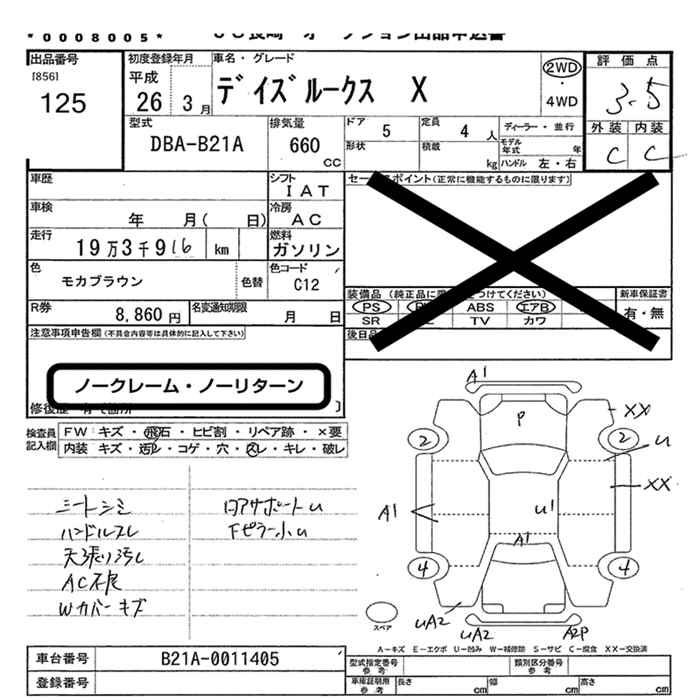 *0008005*
出品番号 初度登録年月 車名・グレード 評価点
[856] 平成 2WD
125 26 3月 デイズルークス X 4WD 3.5
型式 排気量 ドア 5 定員 4人 ディーラー・並行 外装 内装
DBA-B21A 660 CC 形状 積載 kg モデル年式 年 C C
ハンドル 左・右
車歴 シフト IAT
車検 年 月( 日) 冷房 AC
走行 19万3千916 km 燃料 ガソリン
色 モカブラウン 色替 色コード C12
装備品 新車保証書
PS ABS エアB 有・無
SR TV カワ
R券 8,860円 名変通知期限 月 日
後日品
注意事項申告欄(不具合内容等は具体的に記入して下さい)
ノークレーム・ノーリターン
検査員記入欄 FW キズ・飛石・ヒビ割・リペア跡・×要
内装 キズ・汚レ・コゲ・穴・スレ・キレ・破レ
シートシミ
ハンドルスレ
天張り汚し
AC不良
Wカバーキズ
ロアサポートU
Fピラー小U
A1
P
XX
2 2
U
XX
A1
U1
A1
4 4
UA2
UA2
A2P
スペア
A-キズ E-エクボ U-凹み W-補修跡 S-サビ C-腐食 XX-交換済
車台番号 B21A-0011405
登録番号
型式指定番号 参考 類別区分番号 参考
車庫証明用 参考 長さ cm 幅 cm 高さ cm